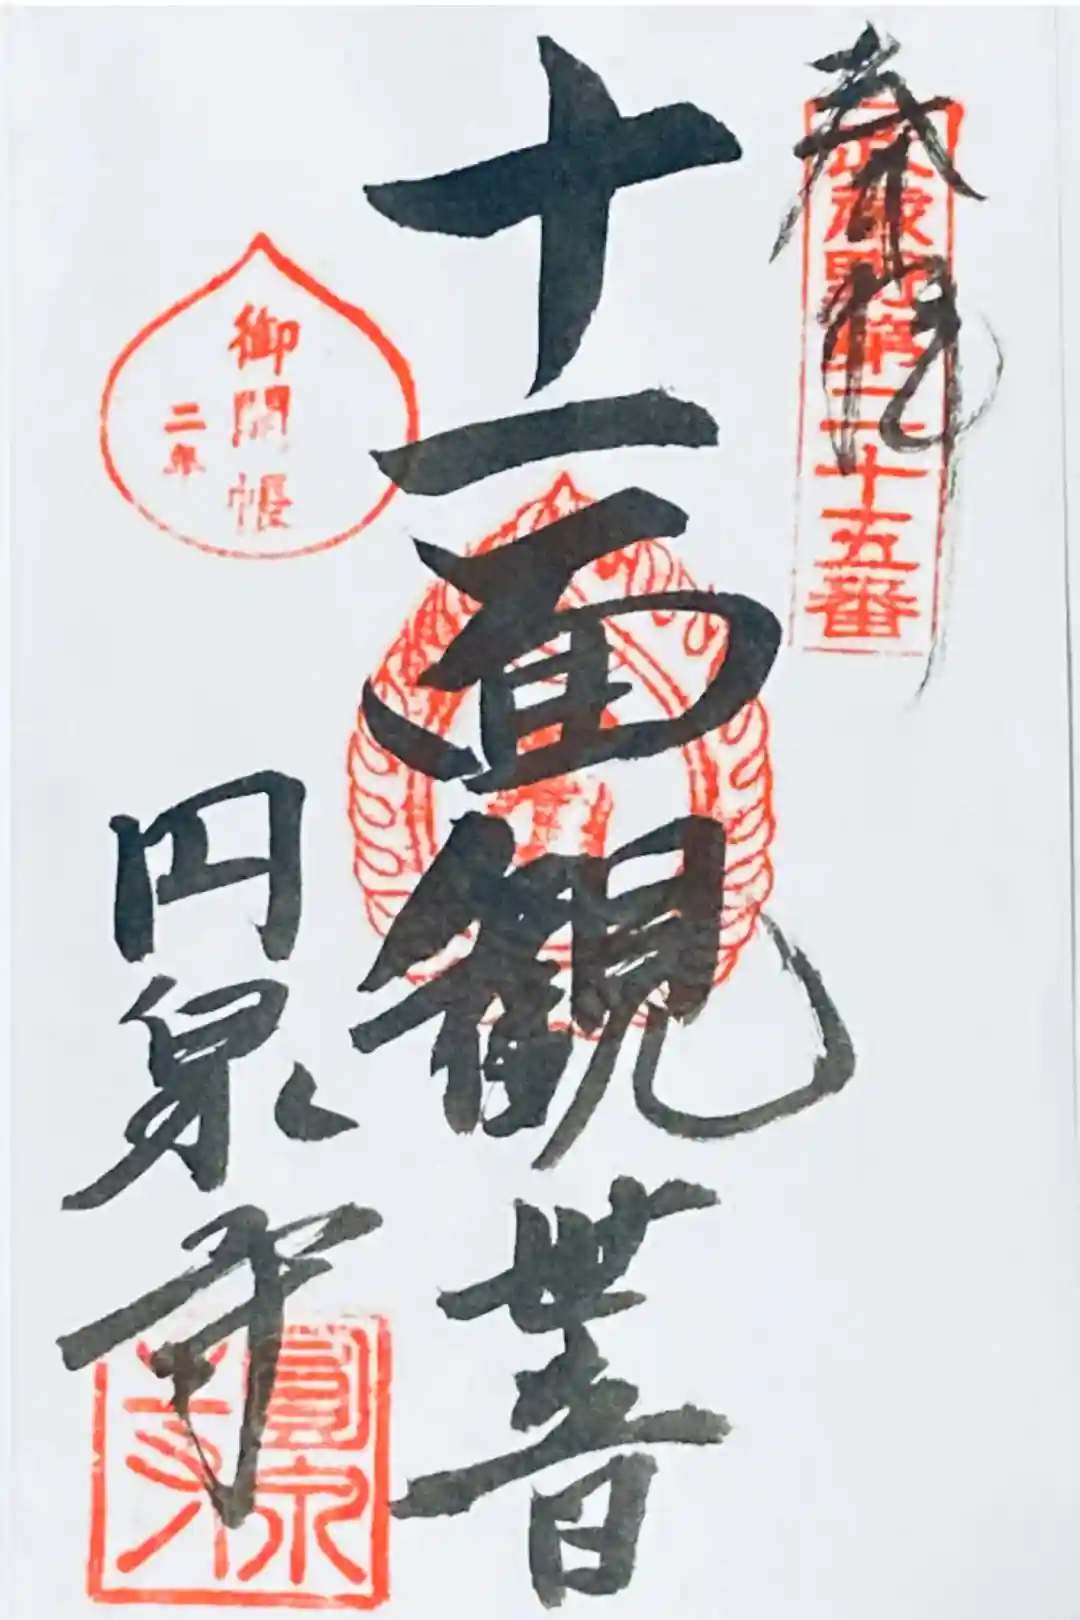 奉拝
武蔵野第二十五番
十一面観世音
御開帳
二年
円泉寺